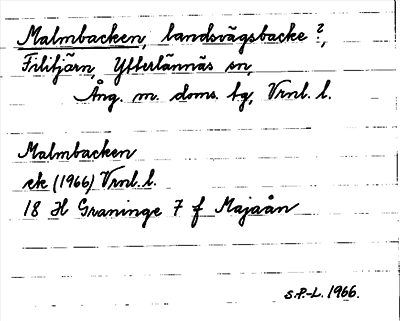 Malmbacken, landsvägsbacke ?,
Filitjärn, Ytterlännäs sn,
Ång. m. doms. tg, Vrnl. l.
Malmbacken
ek (1966) Vrnl. l.
18 H Graninge 7 f Majaån
S.P.-L. 1966.